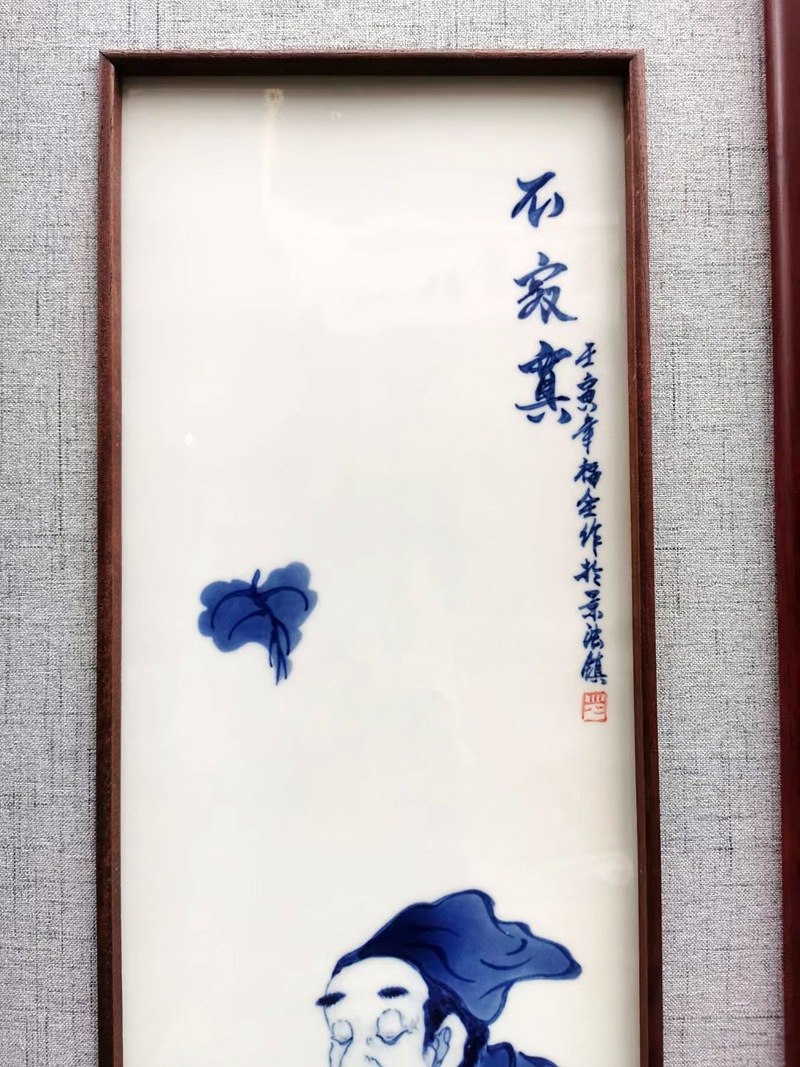 不寂寞
壬寅年福全作於景德鎮